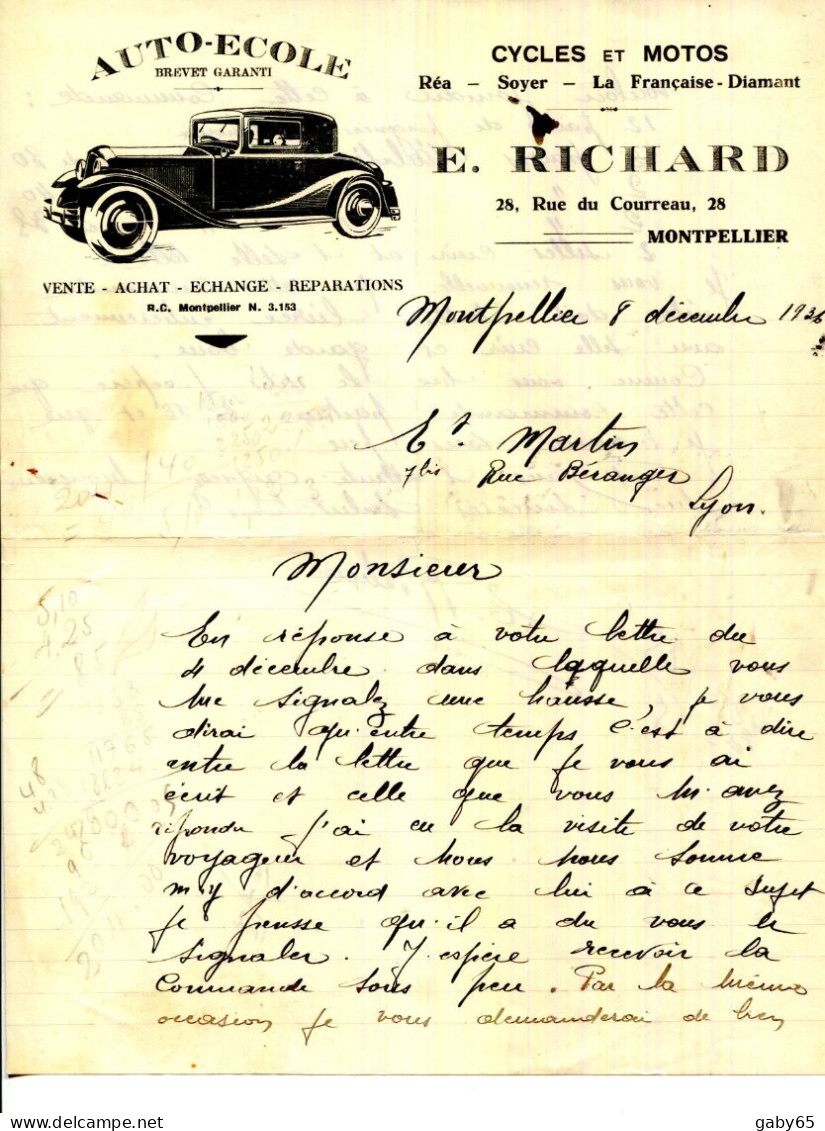 AUTO-ECOLE
BREVET GARANTI
VENTE - ACHAT - ECHANGE - REPARATIONS
R.C. Montpellier N. 3.153
CYCLES ET MOTOS
Réa - Soyer - La Française-Diamant
E. RICHARD
28, Rue du Courreau, 28
MONTPELLIER
Montpellier 8 décembre 193
Ets. Martin
7 bis Rue Béranger
Lyon.
Monsieur
En réponse à votre lettre du
4 décembre dans laquelle vous
me signalez une hausse, je vous
dirai qu'entre temps c'est à dire
entre la lettre que je vous ai
écrit et celle que vous m'avez
répondu j'ai eu la visite de votre
voyageur et nous nous somme
mis d'accord avec lui à ce sujet
je pensse qu'il a du vous le
signaler. J'espère recevoir la
Commande sous peu. Par la même
occasion je vous demanderai de bien
5,10
4.25
85
gaby65